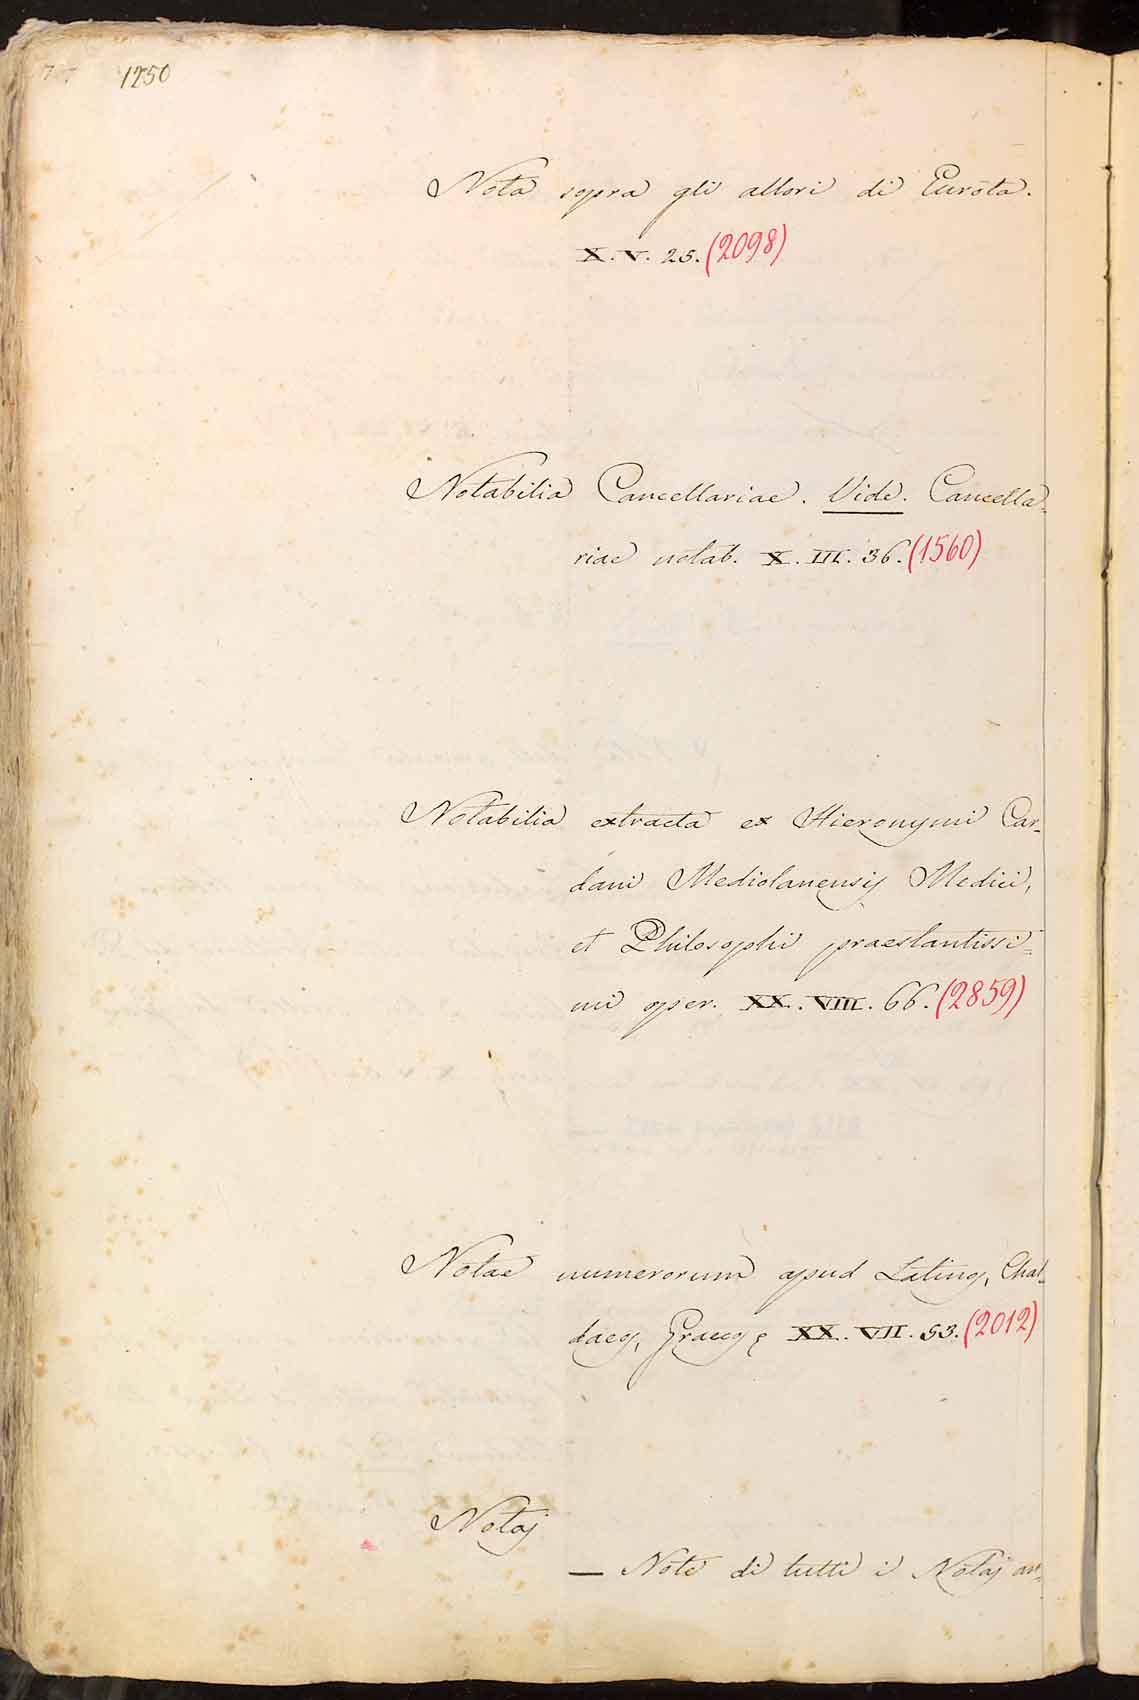 1250
Nota sopra gli allori di Eurota.
X. V. 25. (2098)
Notabilia Cancellariae. Vide. Cancella-
riae notab. X. III. 36. (1560)
Notabilia extracta ex Hieronymi Car-
dani Mediolanensis Medici,
et Philosophi praestantissi-
mi oper. XX. VIII. 66. (2859)
Notae numerorum apud Latinos, Chal-
daeos, Graecos XX. VII. 53. (2012)
Notaj
— Note di tutti i Notaj an-